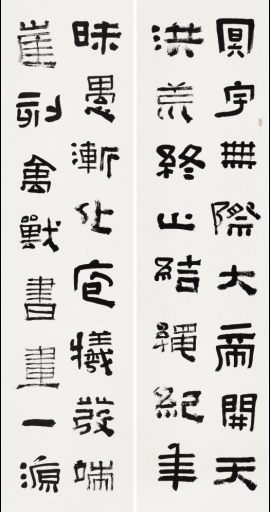 冥宇無際大帝開天
洪荒終止結繩紀年
昧愚漸化庖犧發端
崖刻禽獸書畫一源